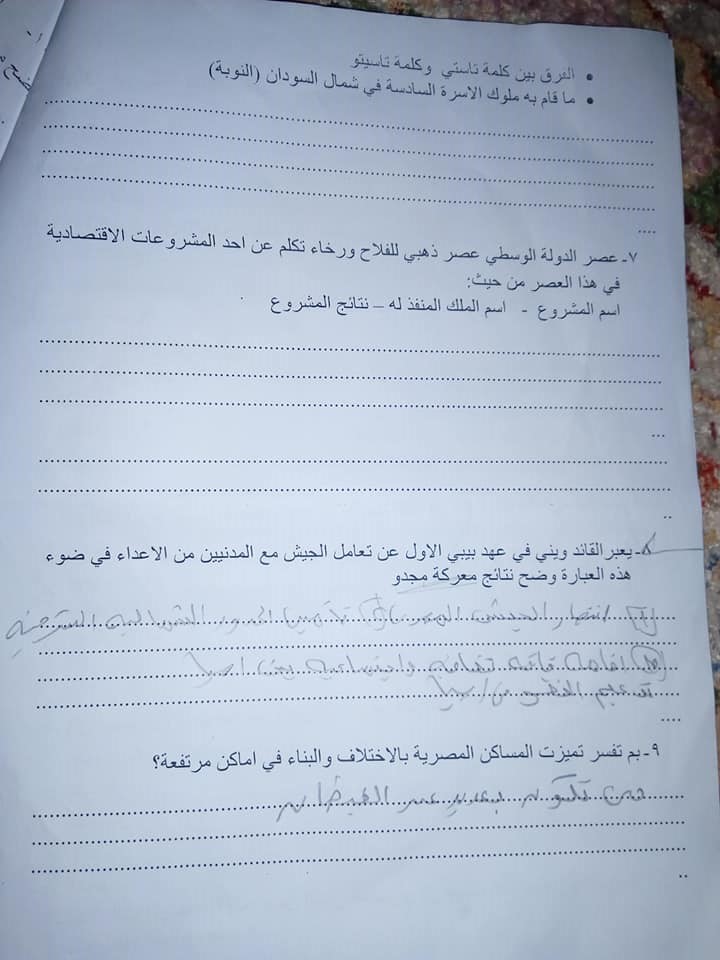 • الفرق بين كلمة تاستي وكلمة تاسيتو
• ما قام به ملوك الاسرة السادسة في شمال السودان (النوبة)
٧- عصر الدولة الوسطي عصر ذهبي للفلاح ورخاء تكلم عن احد المشروعات الاقتصادية
في هذا العصر من حيث:
اسم المشروع - اسم الملك المنفذ له – نتائج المشروع
٨- يعبر القائد ويني في عهد بيبي الاول عن تعامل الجيش مع المدنيين من الاعداء في ضوء
هذه العبارة وضح نتائج معركة مجدو
انتصار الجيش المصري تأمين الحدود الشمالية الشرقية
اقامة
٩- بم تفسر تميزت المساكن المصرية بالاختلاف والبناء في اماكن مرتفعة؟
حتى تكون بعيدة عن الفيضان